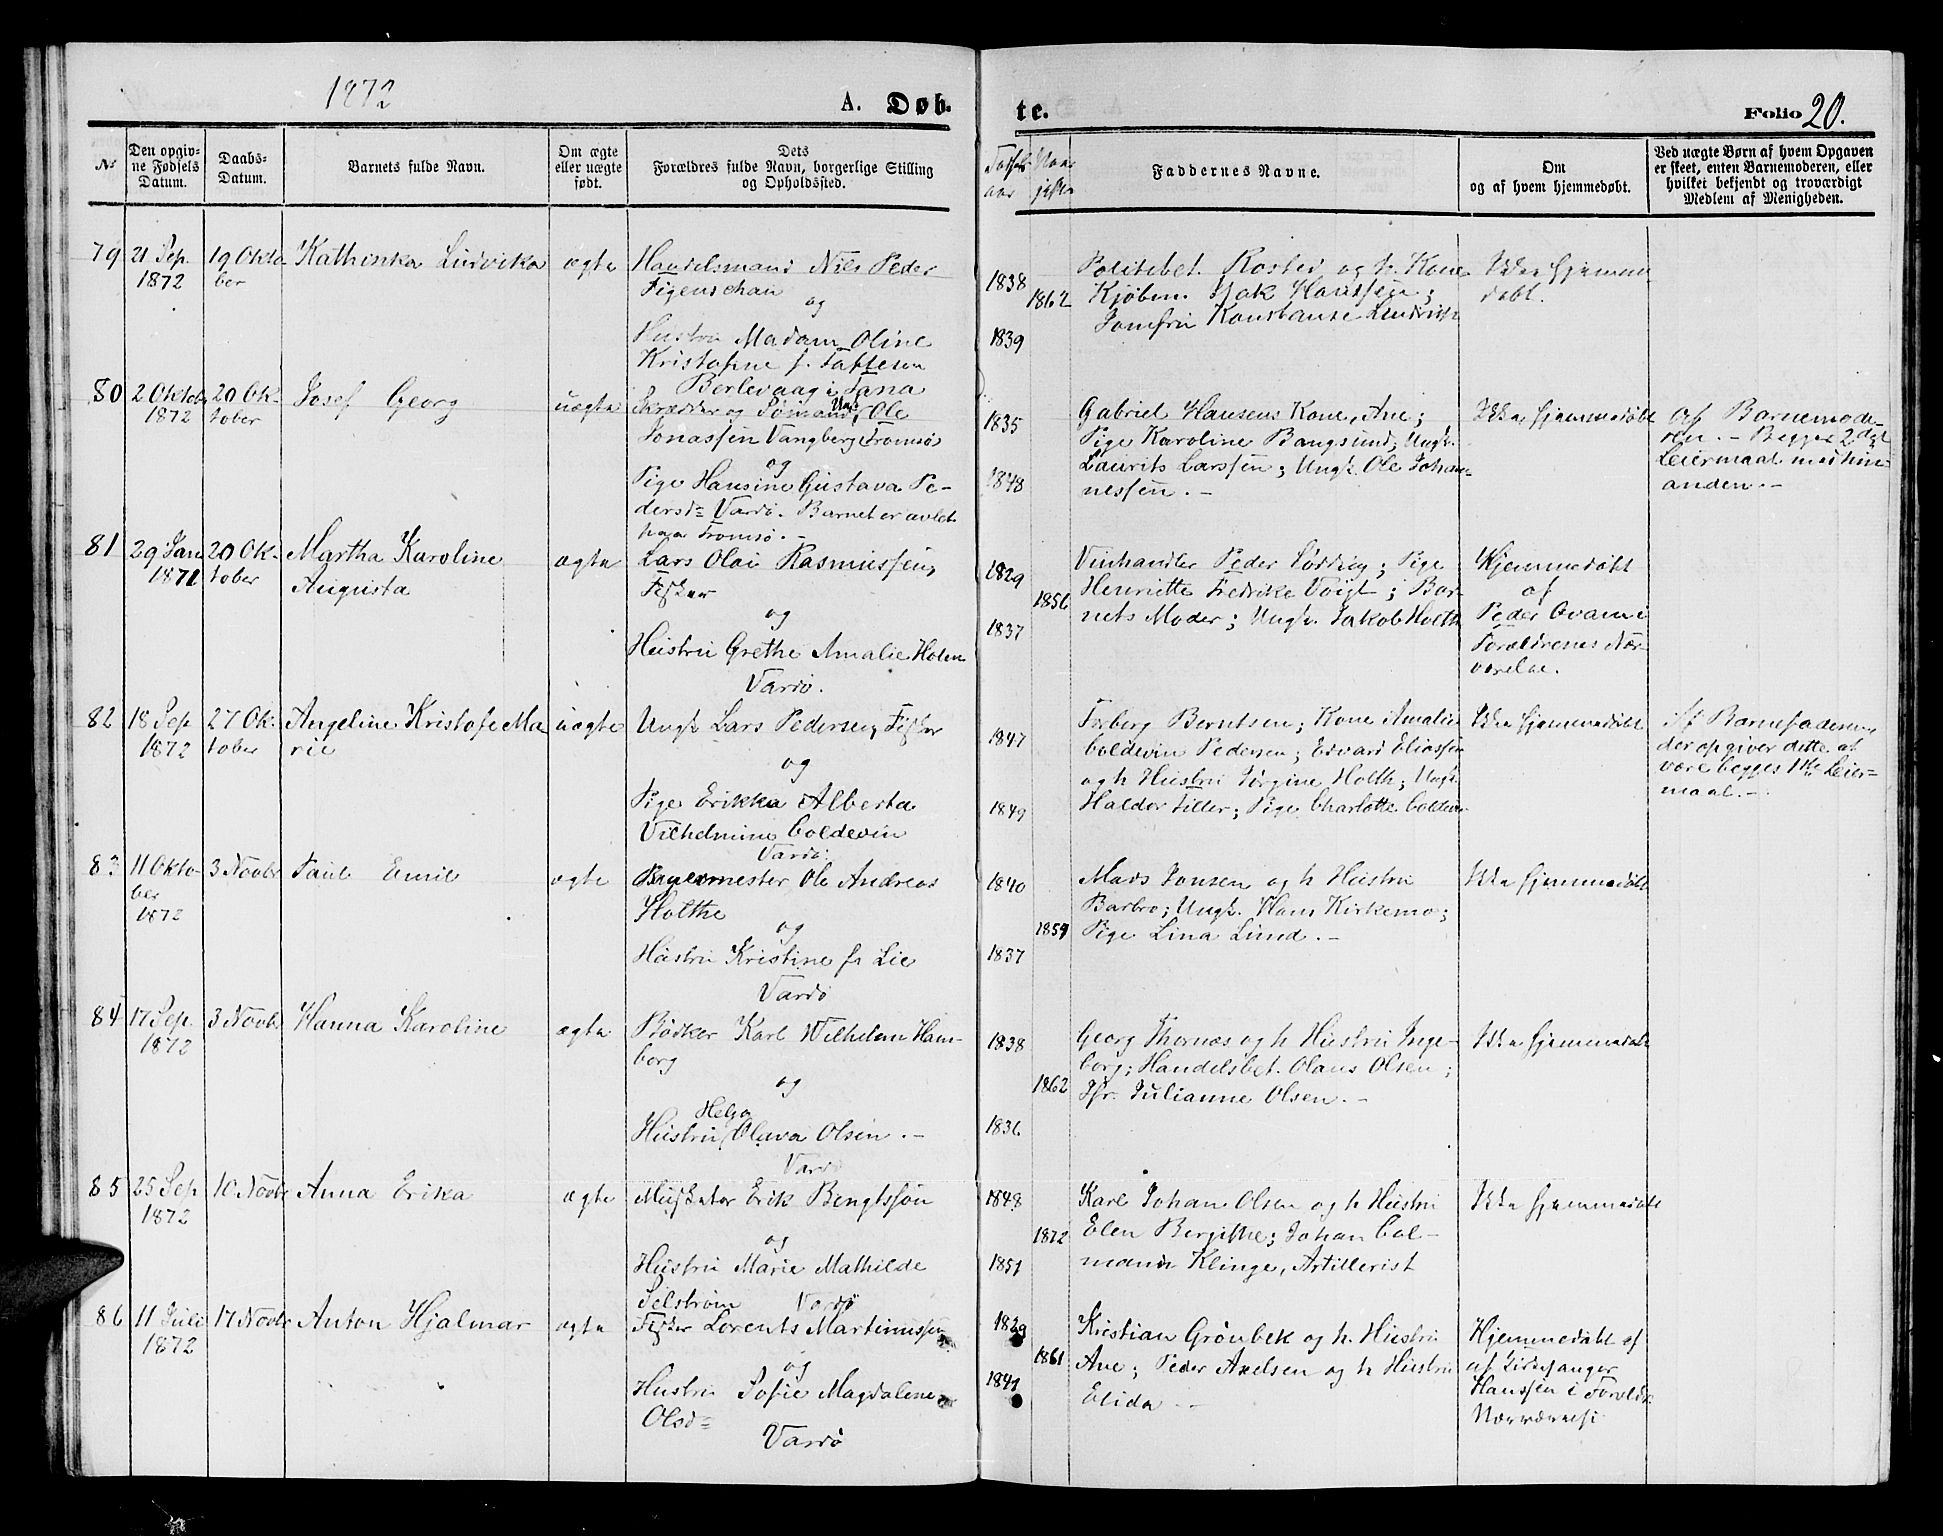 1872
A. Døb-
te.
Folio 20.
No
Den opgiv-
ne Fødsels
Datum.
Daabs-
Datum.
Barnets fulde Navn.
Om ægte
eller uægte
født.
Dets
Forældres fulde Navn, borgerlige Stilling
og Opholdssted.
aar
Faddernes Navne.
Om
og af hvem hjemmedøbt.
Ved uægte Børn af hvem Opgaven
er skeet, enten Barnemoderen, eller
hvilket bekjendt og troværdigt
Medlem af Menigheden.
79
21 Sep.
1872
19 Okto
ber
Kathinka Ludvika
ægte
Handelsmand Nils Peder
Figenschau
og
Hustru Madam Oline
Kristofine f.
Berlevaag i Tana
1838
1862
1839
Politibet. Rosted og h. Kone
Kjøbm. Isak Hanssen;
Jomfru Konstanse
Ikke hjemme
døbt.
80
2 Oktob
1872
20 Ok-
tober
Josef Georg
uægte
Skrædder og Sømand, Ungk. Ole
Jonassen Vangberg, Tromsø
og
Pige Hansine Gustava Pe-
dersd= Vardø. Barnet er avlet
paa Tromsø. -
1835
1848
Gabriel Hansens Kone, Ane;
Pige Karoline Bangsund; Ungk.
Laurits Larssen; Ungk Ole Johan-
nessen. -
Ikke hjemmedøbt
Af Barnemode-
ren. - Begges 2det
Leiermaal med hin-
anden. -
81
29 Jan
1871
20 Ok-
tober
Martha Karoline
Augusta
ægte
Lars Olai Rasmussen,
Fisker
og
Hustru Grethe Amalie Holm
Vardø.
1829
1856
1837
Vinhandler Peder Lødding; Pige
Henriette Fredrike Voigt; Bar-
nets Moder; Ungk. Jakob Holth
Hjemmedøbt
af
Peder Ovam i
Forældrenes Nær
værelse.
82
18 Sep
1872
27 Ok-
tober
Angeline Kristofe Ma
rie
uægte
Ungk Lars Pedersen, Fisker
og
Pige Erikka Alberta
Vilhelmine Coldevin
Vardø.
1847
1849
Torberg Berntsen; Kone Amalie
Coldevin Pedersen; Edvard Eliassen
og h Hustru Jørgine Holth; Ungk
Haldor Tiller; Pige Charlotte Coldevin
Ikke hjemmedøbt
Af Barnefaderen,
der opgiver dette at
være begges 1ste Leier-
maal. -
83
11 Okto-
ber
1872
3 Novbr
Paul Emil
ægte
Bagermester Ole Andreas
Holthe
og
Hustru Kristine f. Lie
Vardø
1840
1859
1837
Mads Jonsen og h Hustru
Barbro; Ungk. Hans Kirkemo;
Pige Lina Lund. -
Ikke hjemmedøbt
84
17 Sep.
1872
3 Novbr
Hanna Karoline
ægte
Bødker Karl Wilhelm Ham-
borg
og
Helga
Hustru Olava Olsen. -
Vardø
1838
1862
1836
Georg Thornæs og h Hustru Inge-
borg; Handelsbet. Olaus Olsen;
Jfr. Julianne Olsen. -
Ikke hjemmedøbt
85
25 Sep
1872
10 Novbr
Anna Erika
ægte
Musketer Erik Bengtssøn
og
Hustru Marie Mathilde
Selstrøm Vardø
1848
1872
1851
Karl Johan Olsen og h Hustru
Elen Bergithe; Johan Col-
mand Klinge, Artillerist
Ikke hjemmedøbt
86
11 Juli
1872
17 Novbr
Anton Hjalmar
ægte
Fisker Lorents Martinussen
og
Hustru Sofie Magdalene
Olsd=
Vardø
1829
1861
1841
Kristian Grønbek og h. Hustru
Ane; Peder Axelsen og h Hustru
Elida -
Hjemmedøbt af
af Kirkesanger
Hanssen i Foreldr.
Nærværelse